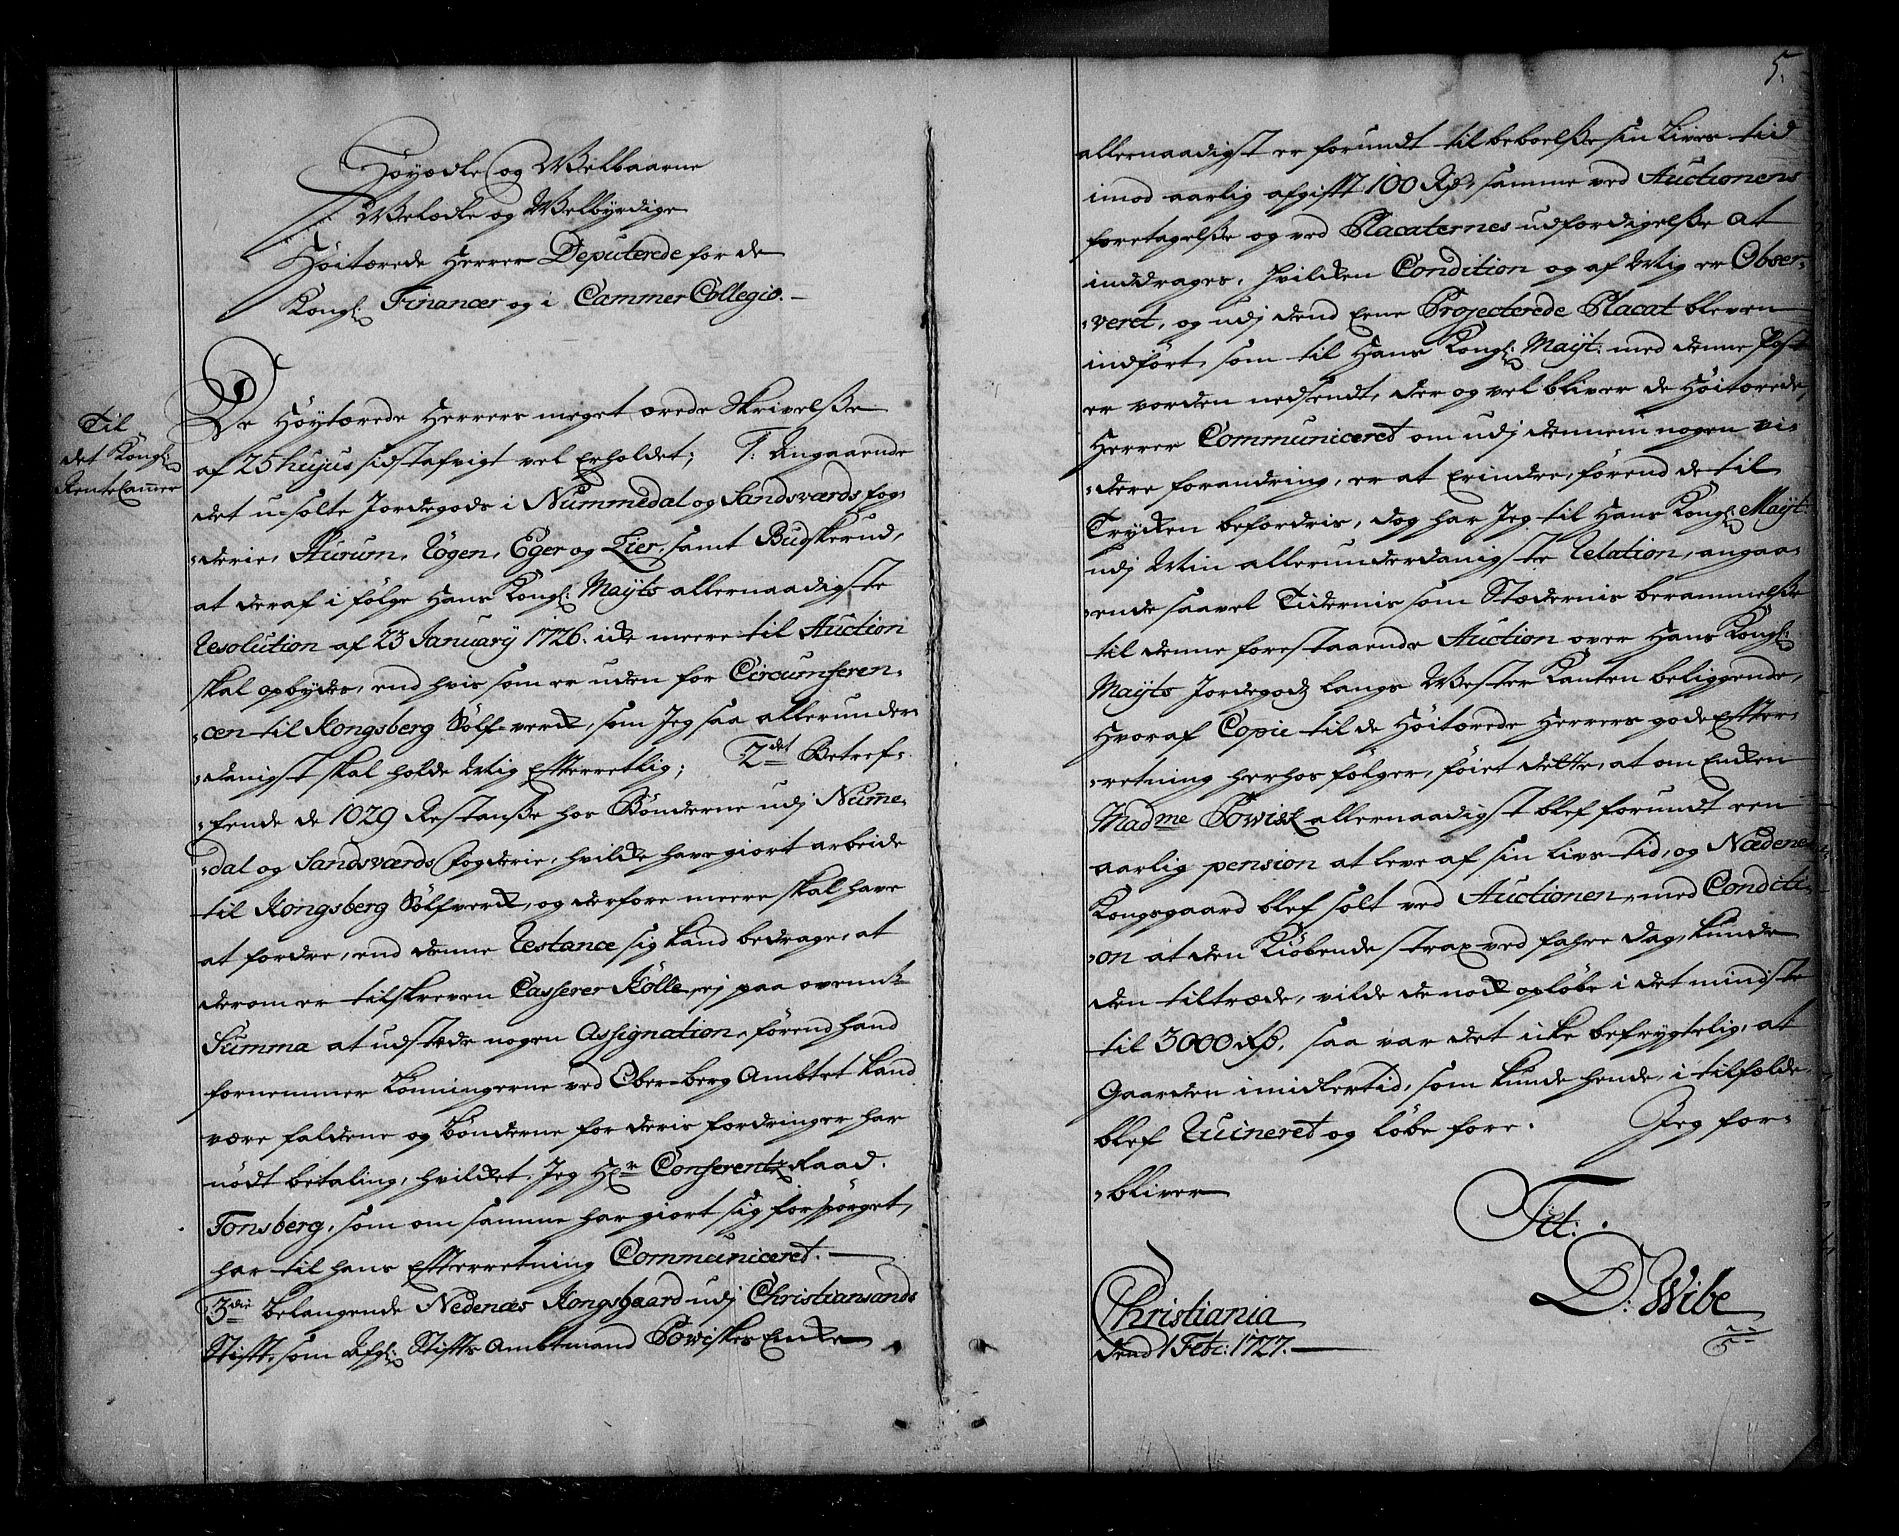 Höyædle og Welbaarne
Welædle og Welbyrdige
Höitærede Herrer Deputerede for de
Kongl: Financer og i Cammer Collegio.-
Til
det Kongl:
Rente Cammer
De Höytærede Herrers meget ærede Skrivelsse
af 25 hujus sidst afvigt vel Erholdet; 1: Angaaende
det u-solte Jordegods i Nummedal og Sandsværds fog-
-derie, Hurum, Rögen, Eger og Lier, samt Budskerud,
at deraf i fölge Hans Kongl: Mayts allernaadigste
Resolution af 23 January 1726. icke meere til Auction
skal opbydes, end hvis som er uden for Circumferen-
-cen til Kongsberg Sölf-verck, som Jeg saa allerunder-
-danigst skal holde Mig Efterretlig; 2det Betref-
-fende de 1029 Restansse hos Bönderne udj Numme-
-dal og Sandsværds fogderie, hvilcke have giort arbeide
til Kongsberg Sölfverck, og derfore meere skal have
at fordre, end denne Restance sig kand bedrage, at
derom er tilskreven Casserer Kölle, ej paa ovenmt
Summa at udstæde nogen Assignation, förend hand
fornemmer Lönningerne ved Ober-berg Ambtet kand
være faldene og bönderne for deris fordringer har
nödt betaling, hvilcket Jeg Hr Conferentz Raad
Tonsberg, som om samme har giort sig forspörget,
har til hans Efterretning Communiceret.-
3die Belangende Nedenæs Kongsgaard udj Christiansands
Stift, som Afgl: Stifts Ambtmand Powiskes Encke
5.
allernaadigst er forundt til beboelsse sin Livs tiid
imod aarlig afgift 100 Rd, samme ved Auctionens
foretagelsse og ved Placaternes udfordigelsse at
inddrages, hvilcken Condition og af Mig er Obser-
-veret, og udj dend Eene Projecterede Placat bleven
indfört, som til Hans Kongl: Mayt: med denne Post
er worden nedsendt, der og vel bliver de Höitærede
Herrer Communiceret om udj dennem nogen vi-
-dere forandring, er at Erindre, förend de til
Trycken befordris, dog har Jeg til Hans Kongl: Mayt:
udj Min allerunderdanigste Relation, angaa-
-ende saavel Tidernis som Stædernis berammelsse
til denne forestaaende Auction over Hans Kongl:
Mayts Jordegods langs Wester Kanten beliggende,
hvoraf Copie til de Höitærede Herrers gode Efter-
-retning herhos fölger, föiet dette, at om Encken
Madme Powisk allernaadigst blef forundt een
aarlig pension at leve af sin livs-tid, og Nædenes
Kongsgaard blef solt ved Auctionen, med Conditi-
-on at den Kiöbende strax ved fahre dag, kunde
den tiltræde, vilde de nock oplöbe i det mindste
til 3000 Rd, saa var det icke befrygtelig, at
Gaarden imidlertid, som kunde hende, i tilfælde
blef Ruineret og löbe fore. Jeg for-
-bliver
Tit:
D: Wibe
Christiania
dend 1 Feb: 1727.